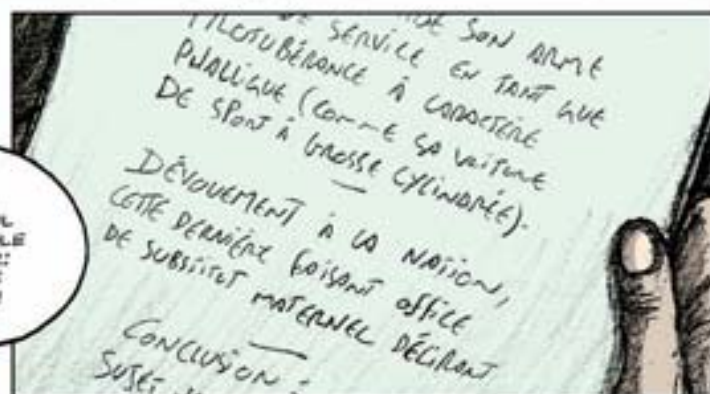 SON ARME
DE SERVICE EN TANT QUE
PROTUBÉRANCE À CARACTÈRE
PHALLIQUE (COMME SA VOITURE
DE SPORT À GROSSE CYLINDRÉE).
DÉVOUEMENT À LA NATION,
CETTE DERNIÈRE FAISANT OFFICE
DE SUBSTITUT MATERNEL DÉLIRANT
CONCLUSION :
SUJET